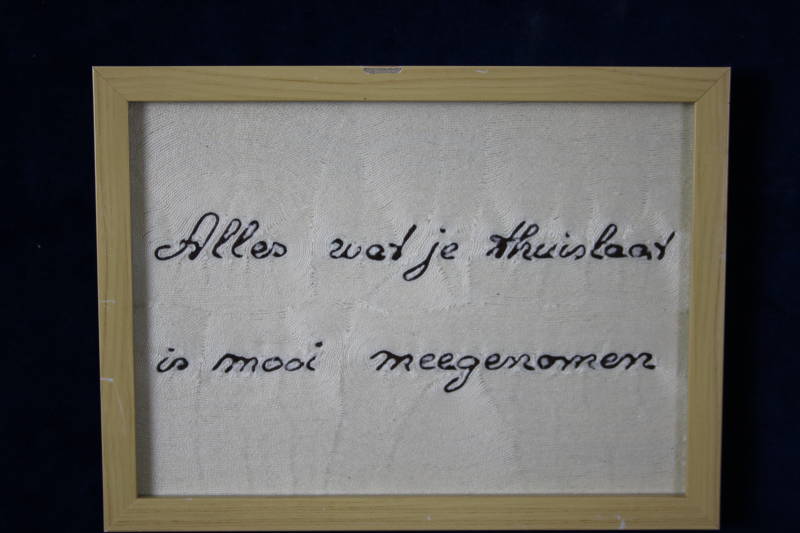 Alles wat je thuislaat
is mooi meegenomen